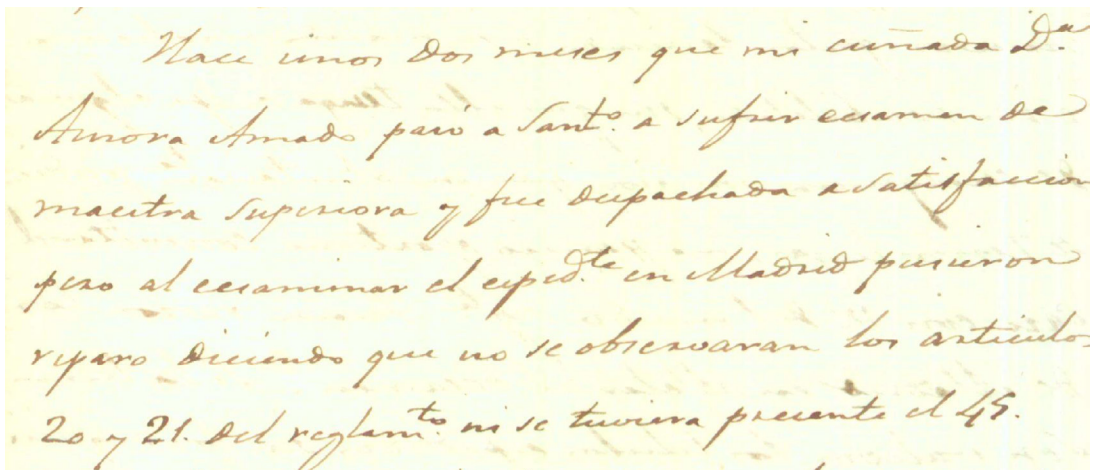 Hace unos dos meses que mi cuñada D.ª
Aurora Amado pasó a Sant.º a sufrir ecsamen de
maestra Superiora y fue despachada a satisfaccion
pero al ecsaminar el esped.te en Madrid pusieron
reparo diciendo que no se observaran los articulos
20 y 21. del reglam.to ni se tuviera presente el 45.